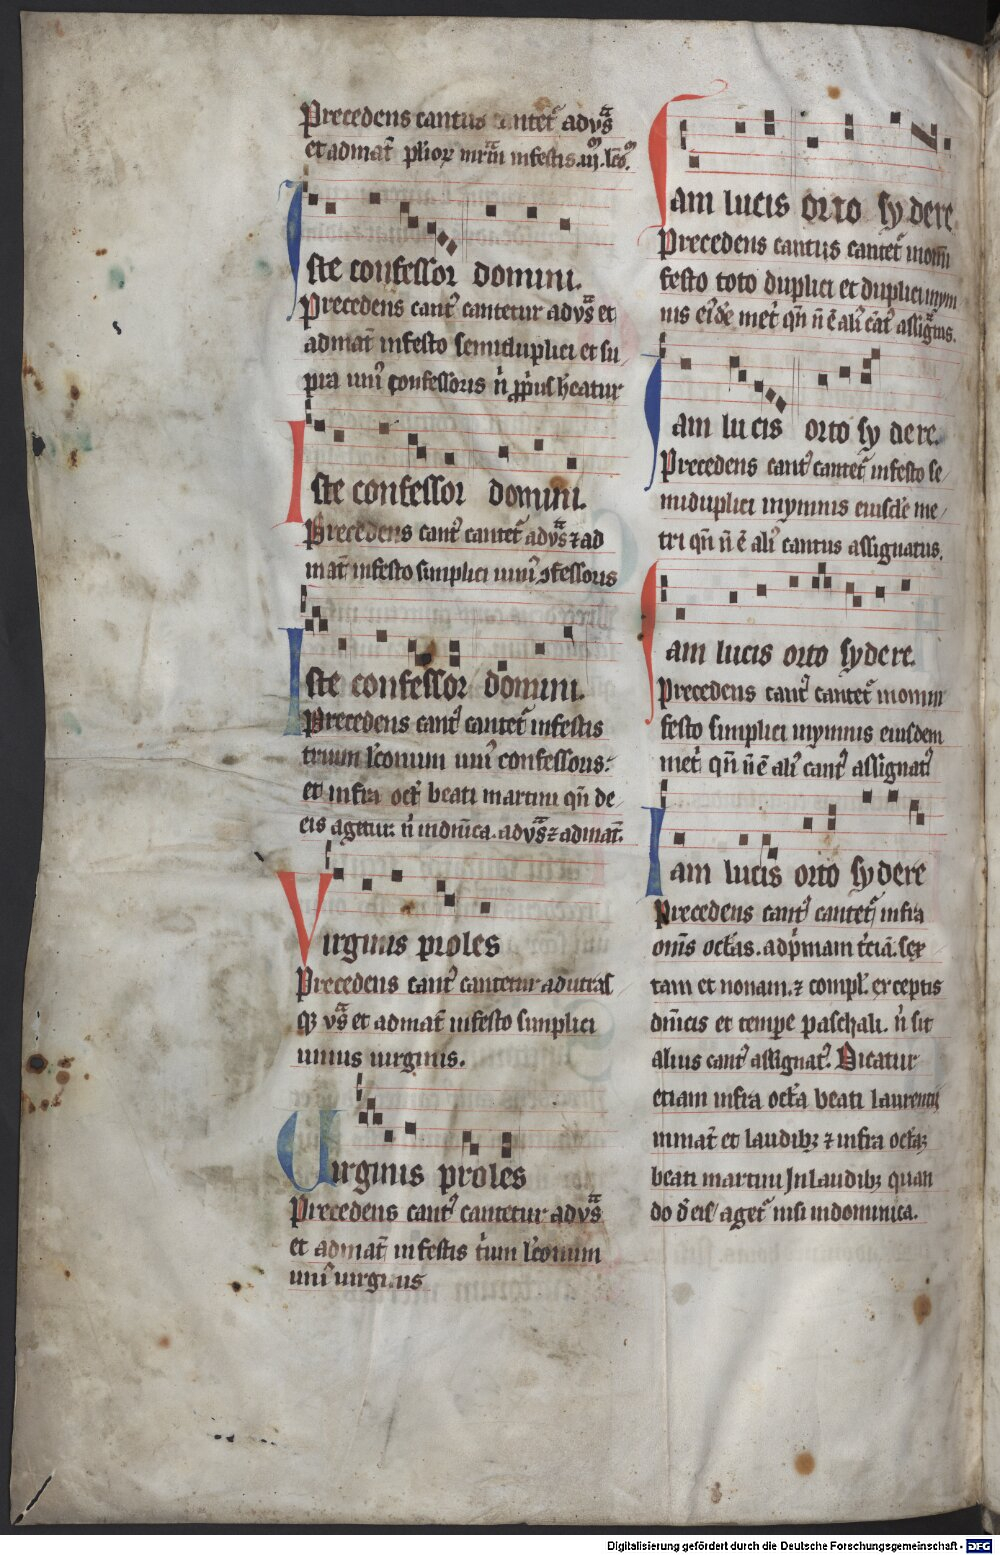 Precedens cantus cantet᷑ ad vꝰs
et ad mat̄ pl̄ior mr̄m in festis .iij. lc̄o.
Iste confessor domini.
Precedens cantꝰ cantetur ad vs̄ et
ad mat̄ in festo semiduplici et su
pra uniꝰ confessoris n̄ ꝓpriꝰ heatur
Iste confessor domini.
Precedens cantꝰ cantet᷑ ad vs̄ ⁊ ad
mat̄ in festo simplici uniꝰ ↄfessoris
Iste confessor domini.
Precedens cantꝰ cantet᷑ in festis
trium lc̄onum uniꝰ confessoris.
et infra oct̄ beati martini qn̄ de
eis agetur. n̄ in dn̄ica. ad vs̄ ⁊ ad mat̄.
Virginis proles
Precedens cantꝰ cantetur ad utras
qꝫ vs̄ et ad mat̄ in festo simplici
unius uirginis.
Uirginis proles
Precedens cantꝰ cantetur ad vs̄
et ad mat̄ in festis t̓um lc̄onum
uniꝰ uirginis
Iam lucis orto sydere
Precedens cantus cantet᷑ in om̄i
festo toto duplici et duplici in ym
nis eiꝰdē met̓ qn̄ n̄ ē aliꝰ cātꝰ assig̃tus.
Iam lucis orto sydere.
Precedens cantꝰ cantet᷑ in festo se
miduplici in ymnis eiusdē me
tri qn̄ n̄ ē aliꝰ cantus assignatus.
Iam lucis orto sydere.
Precedens cantꝰ cantet᷑ in omni
festo simplici in ymnis eiusdem
met̓ qn̄ n̄ ē aliꝰ cantꝰ assignatꝰ
Iam lucis orto sydere
Precedens cantꝰ cantet᷑ infra
om̄s octās. ad pͥmam t̓ciā. sex
tam et nonam. ⁊ compl̄. exceptis
dn̄icis et tempe paschali. n̄ sit
alius cantꝰ assignatꝰ. Dicatur
etiam infra octā beati laurentii
in mat̄ et laudibꝫ ⁊ infra octāꝫ
beati martini In laudibꝫ quan
do d̓ eis aget᷑ nisi in dominica.
Digitalisierung gefördert durch die Deutsche Forschungsgemeinschaft - DFG